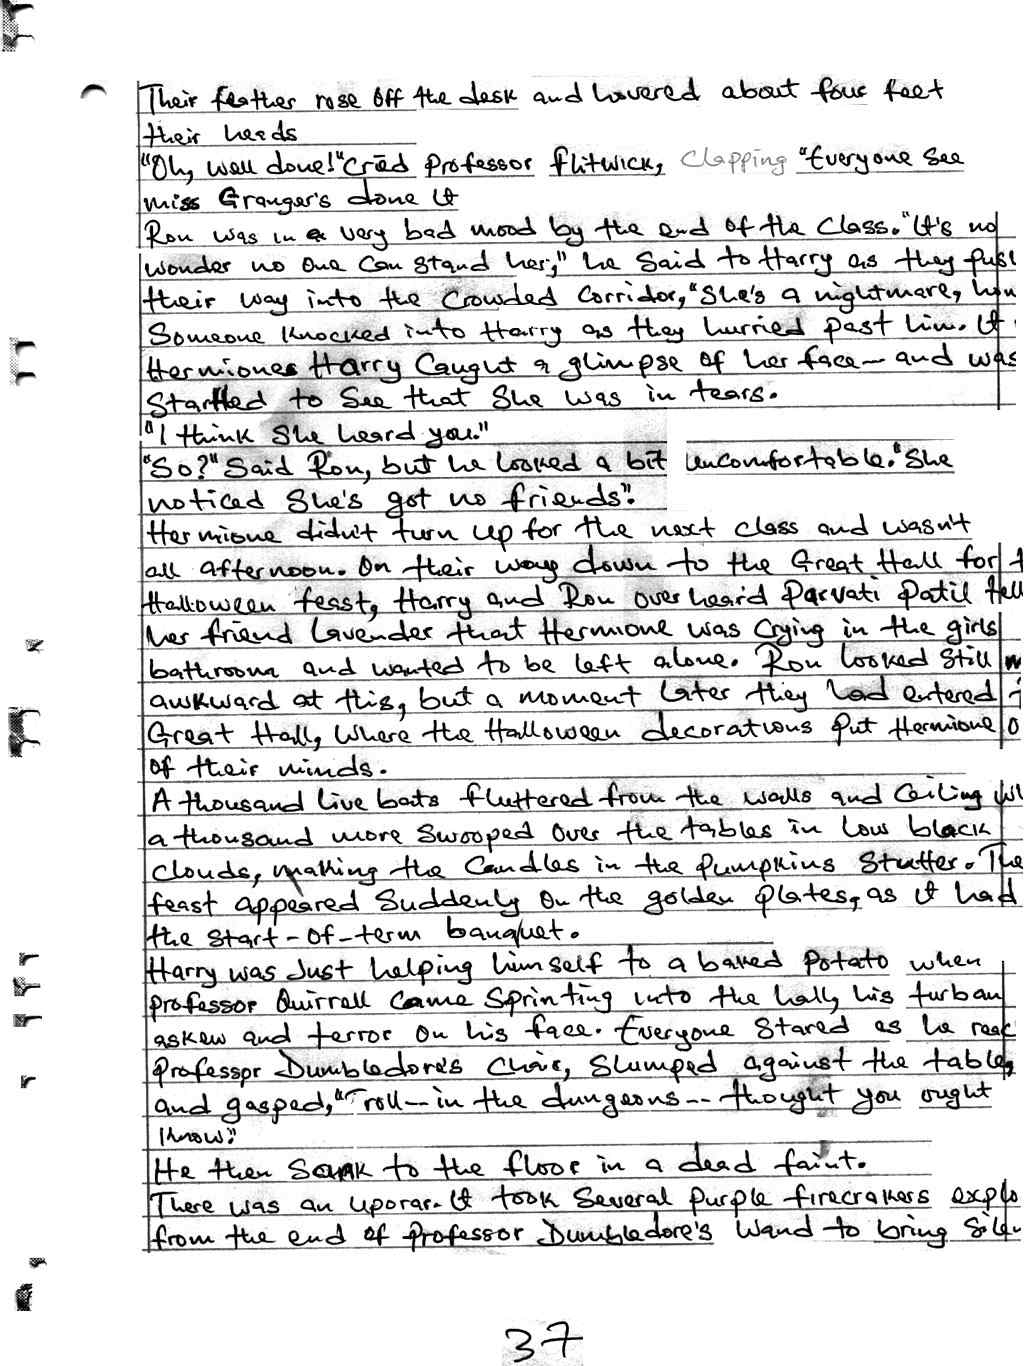 Their feather rose off the desk and hovered about four feet
their heads
"Oh, well done!" cried professor flitwick, clapping "Everyone see
miss Granger's done it
Ron was in a very bad mood by the end of the class. "It's no
wonder no one can stand her," he said to Harry as they push
their way into the crowded corridor, "She's a nightmare, hon
Someone knocked into Harry as they hurried past him. It
Hermiones Harry caught a glimpse of her face - and was
Startled to see that she was in tears.
"I think she heard you."
"So?" said Ron, but he looked a bit uncomfortable. "She
noticed she's got no friends".
Hermione didn't turn up for the next class and wasn't
all afternoon. On their way down to the Great Hall for t
Halloween feast, Harry and Ron overheard Parvati Patil tell
her friend Lavender that Hermione was crying in the girls
bathroom and wanted to be left alone. Ron looked still m
awkward at this, but a moment later they had entered t
Great Hall, where the Halloween decorations put Hermione o
of their minds.
A thousand live bats fluttered from the walls and ceiling wh
a thousand more swooped over the tables in low black
clouds, making the candles in the pumpkins stutter. The
feast appeared suddenly on the golden plates, as it had
the start-of-term banquet.
Harry was just helping himself to a baked potato when
professor Quirrell came sprinting into the hall, his turban
askew and terror on his face. Everyone stared as he reac
professor Dumbledore's chair, slumped against the table,
and gasped, "Troll - in the dungeons -- thought you ought
know."
He then sank to the floor in a dead faint.
There was an uporar. It took several purple firecrakers explo
from the end of professor Dumbledore's wand to bring silen
37